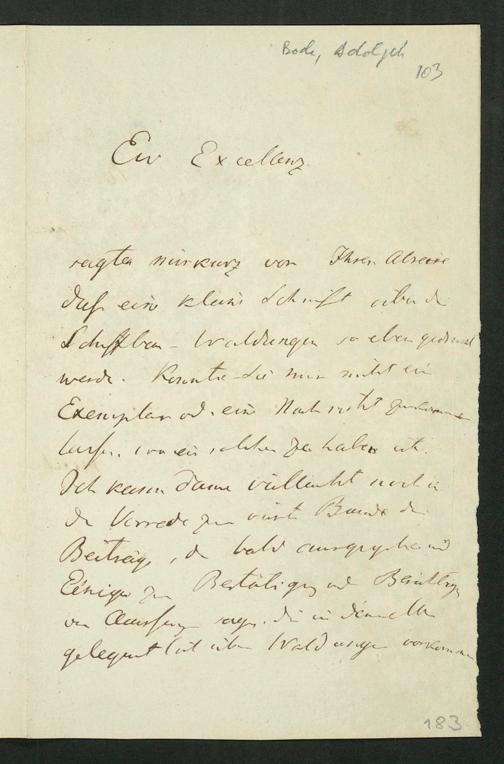 Bode, Adolph
103
Ew Excellenz
sagten mir kurz vor Ihrer Abreise
daß eine kleine Schrift über die
Schiffbau-Waldungen so eben gedruckt
werde. Könnten Sie mir nicht ein
Exemplar od. eine Nachricht zukommen
lassen, wo ein solches zu haben ist.
Ich kann dann vielleicht noch in
der Vorrede zum Bande der
Beiträge, der bald ausgegeben wird
Einiges zur Bestätigung od
von sagen, die in demselben
gelegentlich über Waldungen vorkommen
183